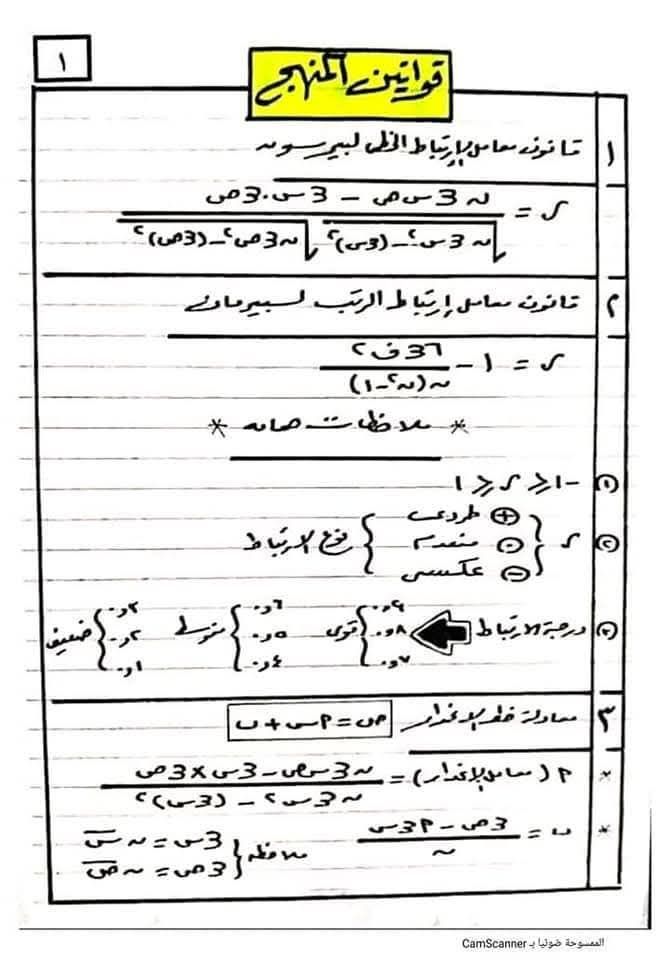 ١
قوانين المنهج
١ قانون معامل الإرتباط الخطى لبيرسون
ر = (ن ٣ س ص - ٣ س . ٣ ص) / (√(ن ٣ س² - (٣ س)²) √(ن ٣ ص² - (٣ ص)²))
٢ قانون معامل إرتباط الرتب لسبيرمان
ر = ١ - (٣٦ ف²) / (ن (ن² - ١))
* ملاحظات هامه *
① -١ ≤ ر ≤ ١
② ر { ⊕ طردى ⊙ منعدم ⊖ عكسى } نوع الارتباط
③ درجة الارتباط { ٩و. ٨و. ٧و. } قوى { ٦و. ٥و. ٤و. } متوسط { ٣و. ٢و. ١و. } ضعيف
٣ معادلة خط الانحدار ص = P س + ب
* P (معامل الإنحدار) = (ن ٣ س ص - ٣ س × ٣ ص) / (ن ٣ س² - (٣ س)²)
* ب = (٣ ص - P ٣ س) / ن ملاحظه { ٣ س = ن س̄
٣ ص = ن ص̄
الممسوحة ضوئيا بـ CamScanner